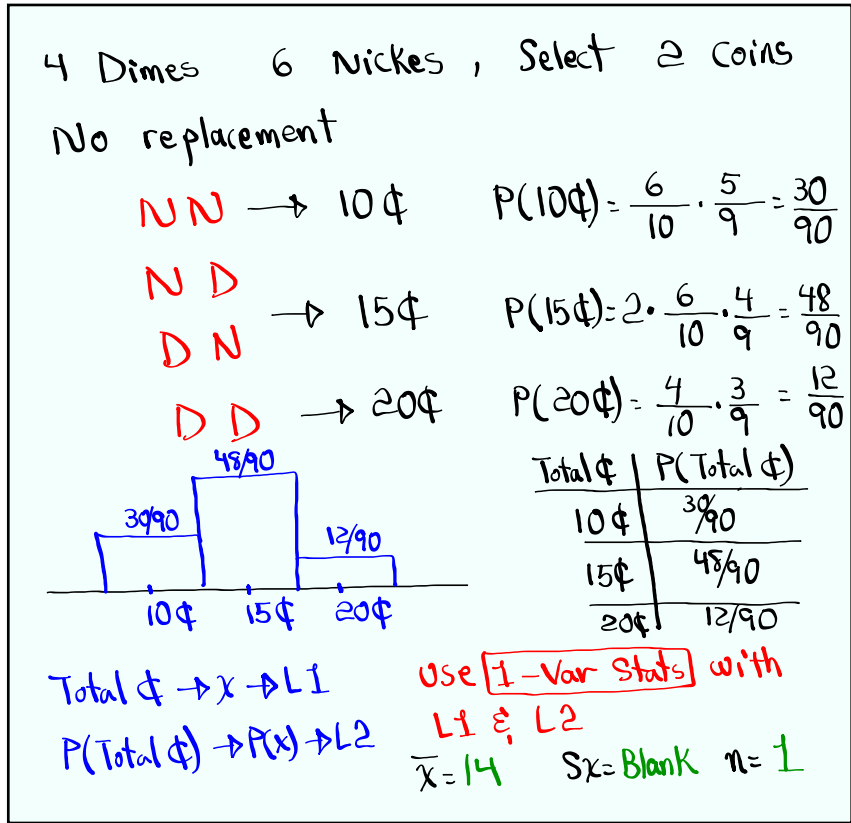 4 Dimes 6 Nickes , Select 2 Coins
No replacement
NN → 10¢ P(10¢) = 6/10 · 5/9 = 30/90
N D
D N → 15¢ P(15¢) = 2 · 6/10 · 4/9 = 48/90
D D → 20¢ P(20¢) = 4/10 · 3/9 = 12/90
48/90
30/90
12/90
10¢ 15¢ 20¢
Total ¢ | P(Total ¢)
10¢ | 30/90
15¢ | 48/90
20¢ | 12/90
Total ¢ → x → L1
P(Total ¢) → P(x) → L2
Use 1-Var Stats with
L1 & L2
x̄ = 14 Sx = Blank n = 1